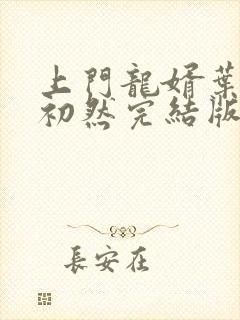 上門龍婿葉
初然完結版
長安在